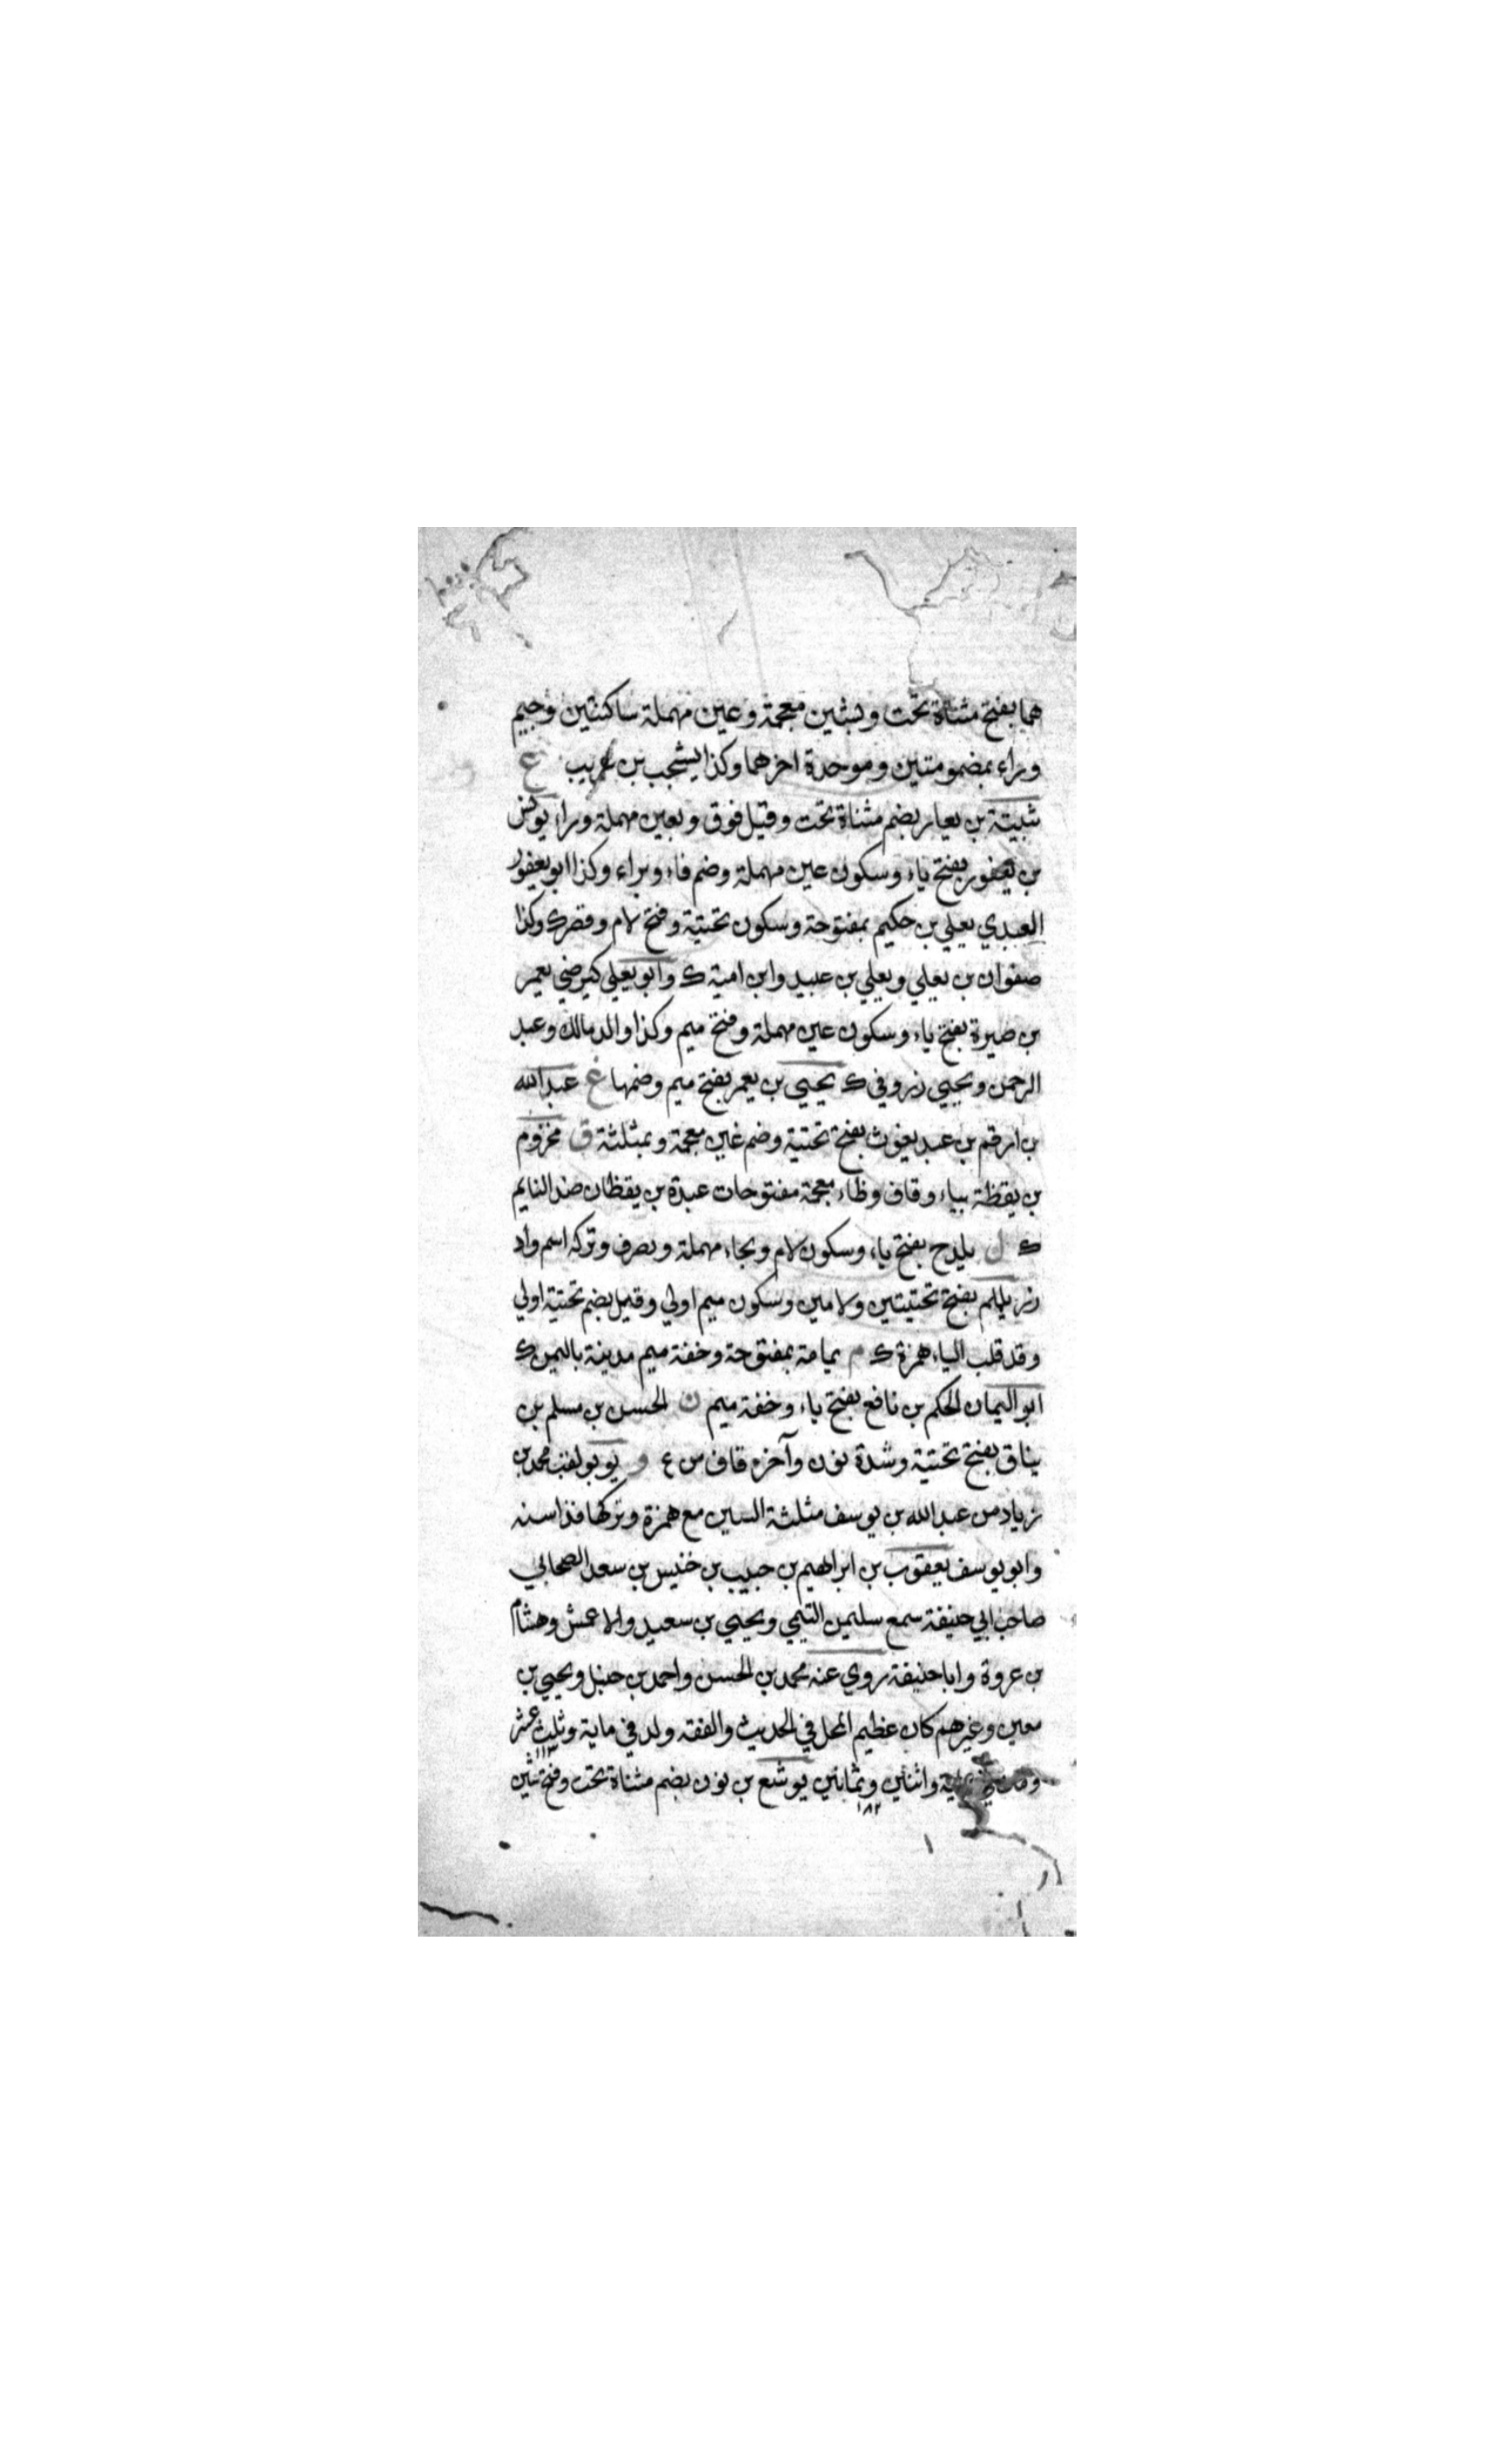 هما بفتح مثناة تحت وبشين معجمة وعين مهملة ساكنتين وجيم
وراء بمضمومتين وموحدة اخرهما وكذا يشجب بن عريب ع
ثبيتة بن يعار بضم مثناة تحت وقيل فوق وبعين مهملة وراء يونس
بن يعفور بفتح ياء وسكون عين مهملة وضم فاء وبراء وكذا ابو يعفور
العبدي يعلي بن حكيم بمفتوحة وسكون تحتية وفتح لام وقصر ك وكذا
صفوان بن يعلي ويعلي بن عبيد وابن امية ك وابو يعلي كيرضي يعمر
بن صيرة بفتح ياء وسكون عين مهملة وفتح ميم وكذا والد مالك وعبد
الرحمن ويحيي نر وفي ك يحيي بن يعمر بفتح ميم وضمها غ عبد الله
بن ارقم بن عبد يغوث بفتح تحتية وضم غين معجمة وبمثلثة ق مخزوم
بن يقظة بياء وقاف وظاء معجمة مفتوحات عبدة بن يقظان ضد النايم
ك ل يلدح بفتح ياء وسكون لام وبحاء مهملة وبصرف وتركه اسم واد
نر يلملم بفتح تحتيتين ولامين وسكون ميم اولي وقيل بضم تحتية اولي
وقد قلب الياء همزة ك م يمامة بمفتوحة وخفة ميم مدينة باليمن ك
ابو اليمان الحكم بن نافع بفتح ياء وخفة ميم ن الحسن بن مسلم بن
يناق بفتح تحتية وشدة نون وآخره قاف س ع و يويو لقب محمد بن
زياد من عبد الله بن يوسف مثلثة السين مع همزة وتركها فذا سنه
وابو يوسف يعقوب بن ابراهيم بن حبيب بن خنيس بن سعد الصحابي
صاحب ابي حنيفة سمع سليمن التيمي ويحيي بن سعيد والاعمش وهشام
بن عروة وابا حنيفة روي عنه محمد بن الحسن واحمد بن حنبل ويحيي بن
معين وغيرهم كان عظيم المحل في الحديث والفقه ولد في ماية وثلث عشر ١١٣
واثنين وثمانين ١٨٢ يوشع بن نون بضم مثناة تحت وفتح شين